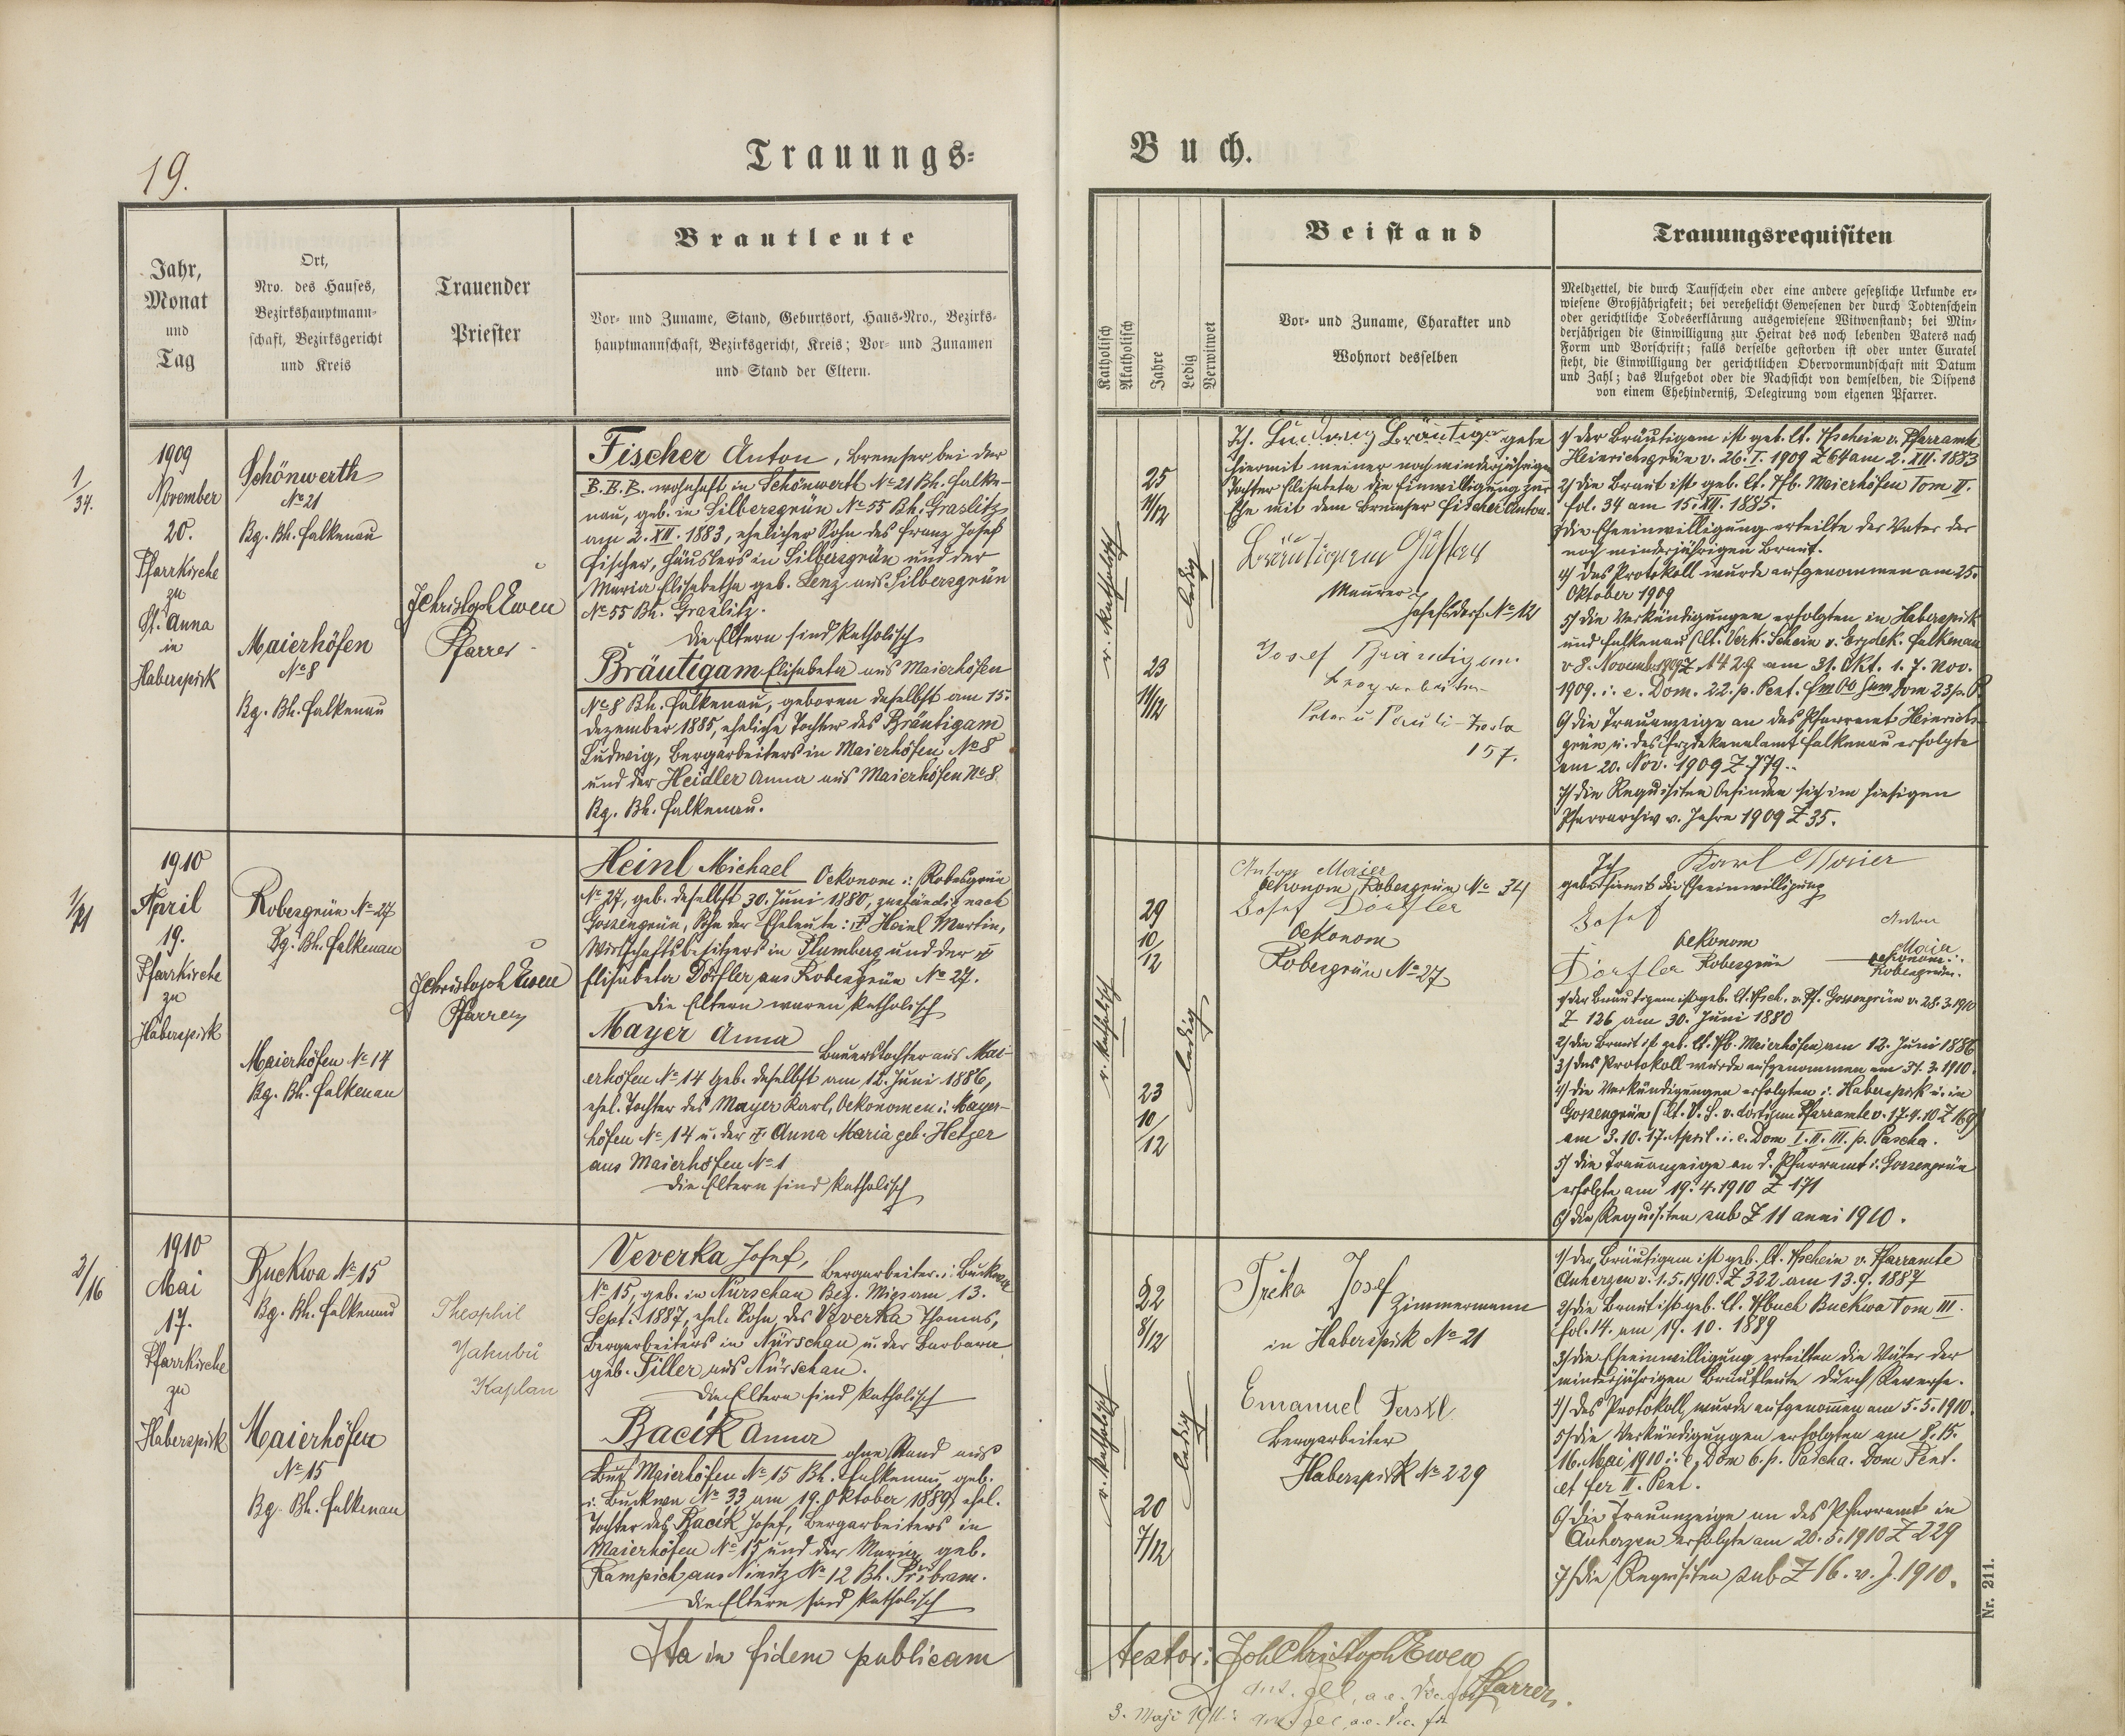 19.
Trauungs-
Buch.
Jahr,
Monat
und
Tag
Ort,
Nro. des Hauses,
Bezirkshauptmann-
schaft, Bezirksgericht
und Kreis
Trauender
Priester
Brautleute
Vor- und Zuname, Stand, Geburtsort, Haus-Nro., Bezirks-
hauptmannschaft, Bezirksgericht, Kreis; Vor- und Zunamen
und Stand der Eltern.
Katholisch
Akatholisch
Jahre
Ledig
Verwitwet
Beistand
Vor- und Zuname, Charakter und
Wohnort desselben
Trauungsrequisiten
Meldzettel, die durch Taufschein oder eine andere gesetzliche Urkunde er-
wiesene Großjährigkeit; bei verehelicht Gewesenen der durch Todtenschein
oder gerichtliche Todeserklärung ausgewiesene Witwenstand; bei Min-
derjährigen die Einwilligung zur Heirat des noch lebenden Vaters nach
Form und Vorschrift; falls derselbe gestorben ist oder unter Curatel
steht, die Einwilligung der gerichtlichen Obervormundschaft mit Datum
und Zahl; das Aufgebot oder die Nachsicht von demselben, die Dispens
von einem Ehehinderniß, Delegirung vom eigenen Pfarrer.
1/34.
1909
November
20.
Pfarrkirche
zu
St. Anna
in
Haberspirk
Schönwerth
No 21
Bg. Bh. Falkenau
Maierhöfen
No 8
Bg. Bh. Falkenau
JChristoph Ewen
Pfarrer
Fischer Anton, Bremser bei der
B.B.B. wohnhaft in Schönwerth No 21 Bh. Falke-
nau, geb. in Silbersgrün No 55 Bh. Graslitz
am 2. XII. 1883, ehelicher Sohn des Franz Josef
Fischer, Häuslers in Silbersgrün und der
Maria Elisabetha geb. Lenz aus Silbersgrün
No 55 Bh. Graslitz.
Die Eltern sind katholisch
Bräutigam Elisabeta aus Maierhöfen
No 8 Bh. Falkenau, geboren daselbst am 15.
Dezember 1885, eheliche Tochter des Bräutigam
Ludwig, Bergarbeiters in Maierhöfen No 8
und der Heidler Anna aus Maierhöfen No 8
Bg. Bh. Falkenau.
r. katholisch
25
11/12
23
11/12
ledig
Ich Ludwig Bräutigam gebe
hiermit meiner noch minderjährigen
Tochter Elisabeta die Einwilligung zur
Ehe mit dem Bremser Fischer Anton.
Bräutigam Gustav
Maurer
Josefsdorf No 12
Josef Bräutigam
Bergarbeiter
Peter u Pauli-Zeche
157.
1/ der Bräutigam ist geb. lt. Tfschein v. Pfarramte
Heinrichsgrün v. 26. I. 1909 Z 64 am 2. XII. 1883
2/ die Braut ist geb. lt. Tfb. Maierhöfen Tom II.
fol. 34 am 15. XII. 1885.
3/ die Eheeinwilligung erteilte der Vater der
noch minderjährigen Braut.
4/ das Protokoll wurde aufgenommen am 25.
Oktober 1909
5/ die Verkündigungen erfolgten in Haberspirk
und Falkenau (lt. Verk. Schein v. Erzdek. Falkenau
v. 8. November 1909 Z 1429 am 31. Okt. 1. 7. Nov.
1909. i. e. Dom. 22. p. Pent. Dom 23 p. P.
6/ die Trauanzeige an das Pfarramt Heinrichs-
grün u. das Erzdekanalamt Falkenau erfolgte
am 20. Nov. 1909 Z 779.
7/ die Requisiten befinden sich im hiesigen
Pfarrarchiv v. Jahre 1909 Z 35.
1910
April
19.
Pfarrkirche
zu
Haberspirk
Robesgrün No 27
Bg. Bh. Falkenau
Maierhöfen No 14
Bg. Bh. Falkenau
JChristoph Ewen
Pfarrer
Heinl Michael Oekonom i. Robesgrün
No 27, geb. daselbst 30. Juni 1880, zuständig nach
Gossengrün, Sohn der Eheleute: † Heinl Martin,
Wirtschaftsbesitzers in Plumberg und der †
Elisabeta Dörfler aus Robesgrün No 27.
Die Eltern waren katholisch
Mayer Anna Bauerstochter aus Mai-
erhöfen No 14 geb. daselbst am 12. Juni 1886,
ehel. Tochter des Mayer Karl, Oekonomen i. Mayer-
höfen No 14 u. der † Anna Maria geb. Hetzer
aus Maierhöfen No 1
Die Eltern sind katholisch
r. katholisch
29
10/12
23
10/12
ledig
Anton Maier
Oekonom Robesgrün No 34
Josef Dörfler
Oekonom
Robesgrün No 27
Ich Karl Maier
gebe hiermit die Eheeinwilligung
Josef
Dörfler
Oekonom
Robesgrün
Anton
Maier
Oekonom i.
Robesgrün.
1/ der Bräutigam ist geb. lt. Tfsch. v. Pf. Gossengrün v. 28. 3. 1910
Z 126 am 30. Juni 1880
2/ die Braut ist geb. lt. Tfb. Maierhöfen am 12. Juni 1886
3/ das Protokoll wurde aufgenommen am 31. 3. 1910.
4/ die Verkündigungen erfolgten i. Haberspirk u. in
Gossengrün (lt. V. S. v. dortigen Pfarramte v. 17. 4. 10 Z 169)
am 3. 10. 17. April. i. e. Dom I. II. III. p. Pascha.
5/ die Trauanzeige an d. Pfarramt i. Gossengrün
erfolgte am 19. 4. 1910 Z 171
6/ die Requisiten sub Z 11 anni 1910.
2/16
1910
Mai
17.
Pfarrkirche
zu
Haberspirk
Buckwa No 15
Bg. Bh. Falkenau
Maierhöfen
No 15
Bg. Bh. Falkenau
Theophil
Jakubů
Kaplan
Veverka Josef, Bergarbeiter i. Buckwa
No 15, geb. in Nürschan Bez. Mies am 13.
Sept. 1887, ehel. Sohn des Veverka Thomas,
Bergarbeiters in Nürschan u. der Barbara
geb. Tiller aus Nürschan.
Die Eltern sind katholisch
Bacik Anna ohne Stand aus
Maierhöfen No 15 Bh. Falkenau, geb.
i. Buckwa No 33 am 19. Oktober 1889, ehel.
Tochter des Bacik Josef, Bergarbeiters in
Maierhöfen No 15 und der Maria geb.
Kampich aus Ninitz No 12 Bh. Přibram.
Die Eltern sind katholisch
r. katholisch
22
8/12
20
7/12
ledig
Trčka Josef
Zimmermann
in Haberspirk No 21
Emanuel
Bergarbeiter
Haberspirk No 229
1/ der Bräutigam ist geb. lt. Tfschein v. Pfarramte
Auherzen v. 1. 5. 1910. Z 322 am 13. 9. 1887
2/ die Braut ist geb. lt. Tfbuch Buckwa Tom III.
fol. 14. am 19. 10. 1889
3/ die Eheeinwilligung erteilten die Väter der
minderjährigen Brautleute durch Reverse.
4/ das Protokoll wurde aufgenommen am 5. 5. 1910.
5/ die Verkündigungen erfolgten am 8. 15.
16. Mai 1910 i. e. Dom 6. p. Pascha. Dom Pent.
et fer II. Pent.
6/ die Trauanzeige an das Pfarramt in
Auherzen erfolgte am 20. 5. 1910 Z 229
7/ die Requisiten sub Z 16. v. J. 1910.
Ita in fidem publicam
testor: Joh Christoph Ewen
Pfarrer.
3. Maji 1911.
Nr. 211.